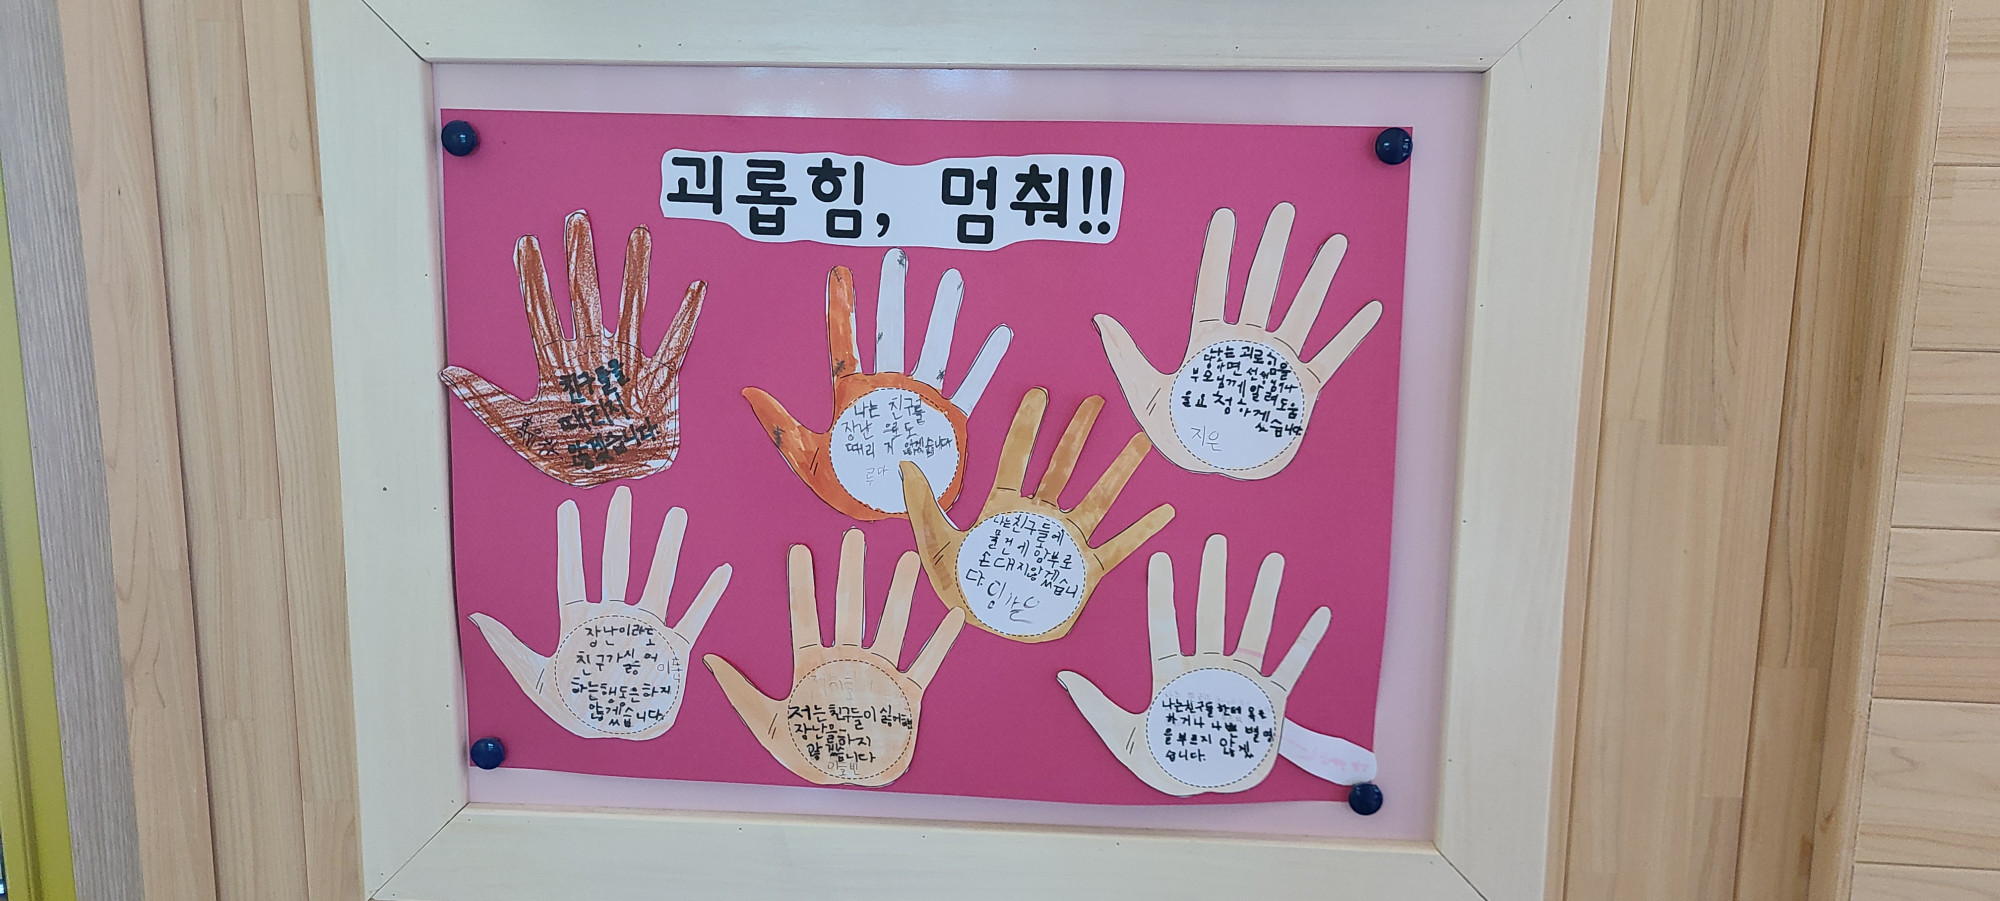 괴롭힘, 멈춰!!
친구들을
때리지
않겠습니다.
나는 친구를
장난 으로도
때리 지 않겠습니다
나는 괴로힘을
당하면 선생님이나
부모님께 알려 도움
을 요청하겠습니다
지은
나는친구들에
물건에 함부로
손대지않겠습니
다.
장난이라도
친구가싫어
하는행동은하지
않겠습니다.
저는친구들이 싫어하는
장난을하지
않겠습니다
나는친구들한테 욕은
하거나 나쁜 별명
을부르지 않겠
습니다.